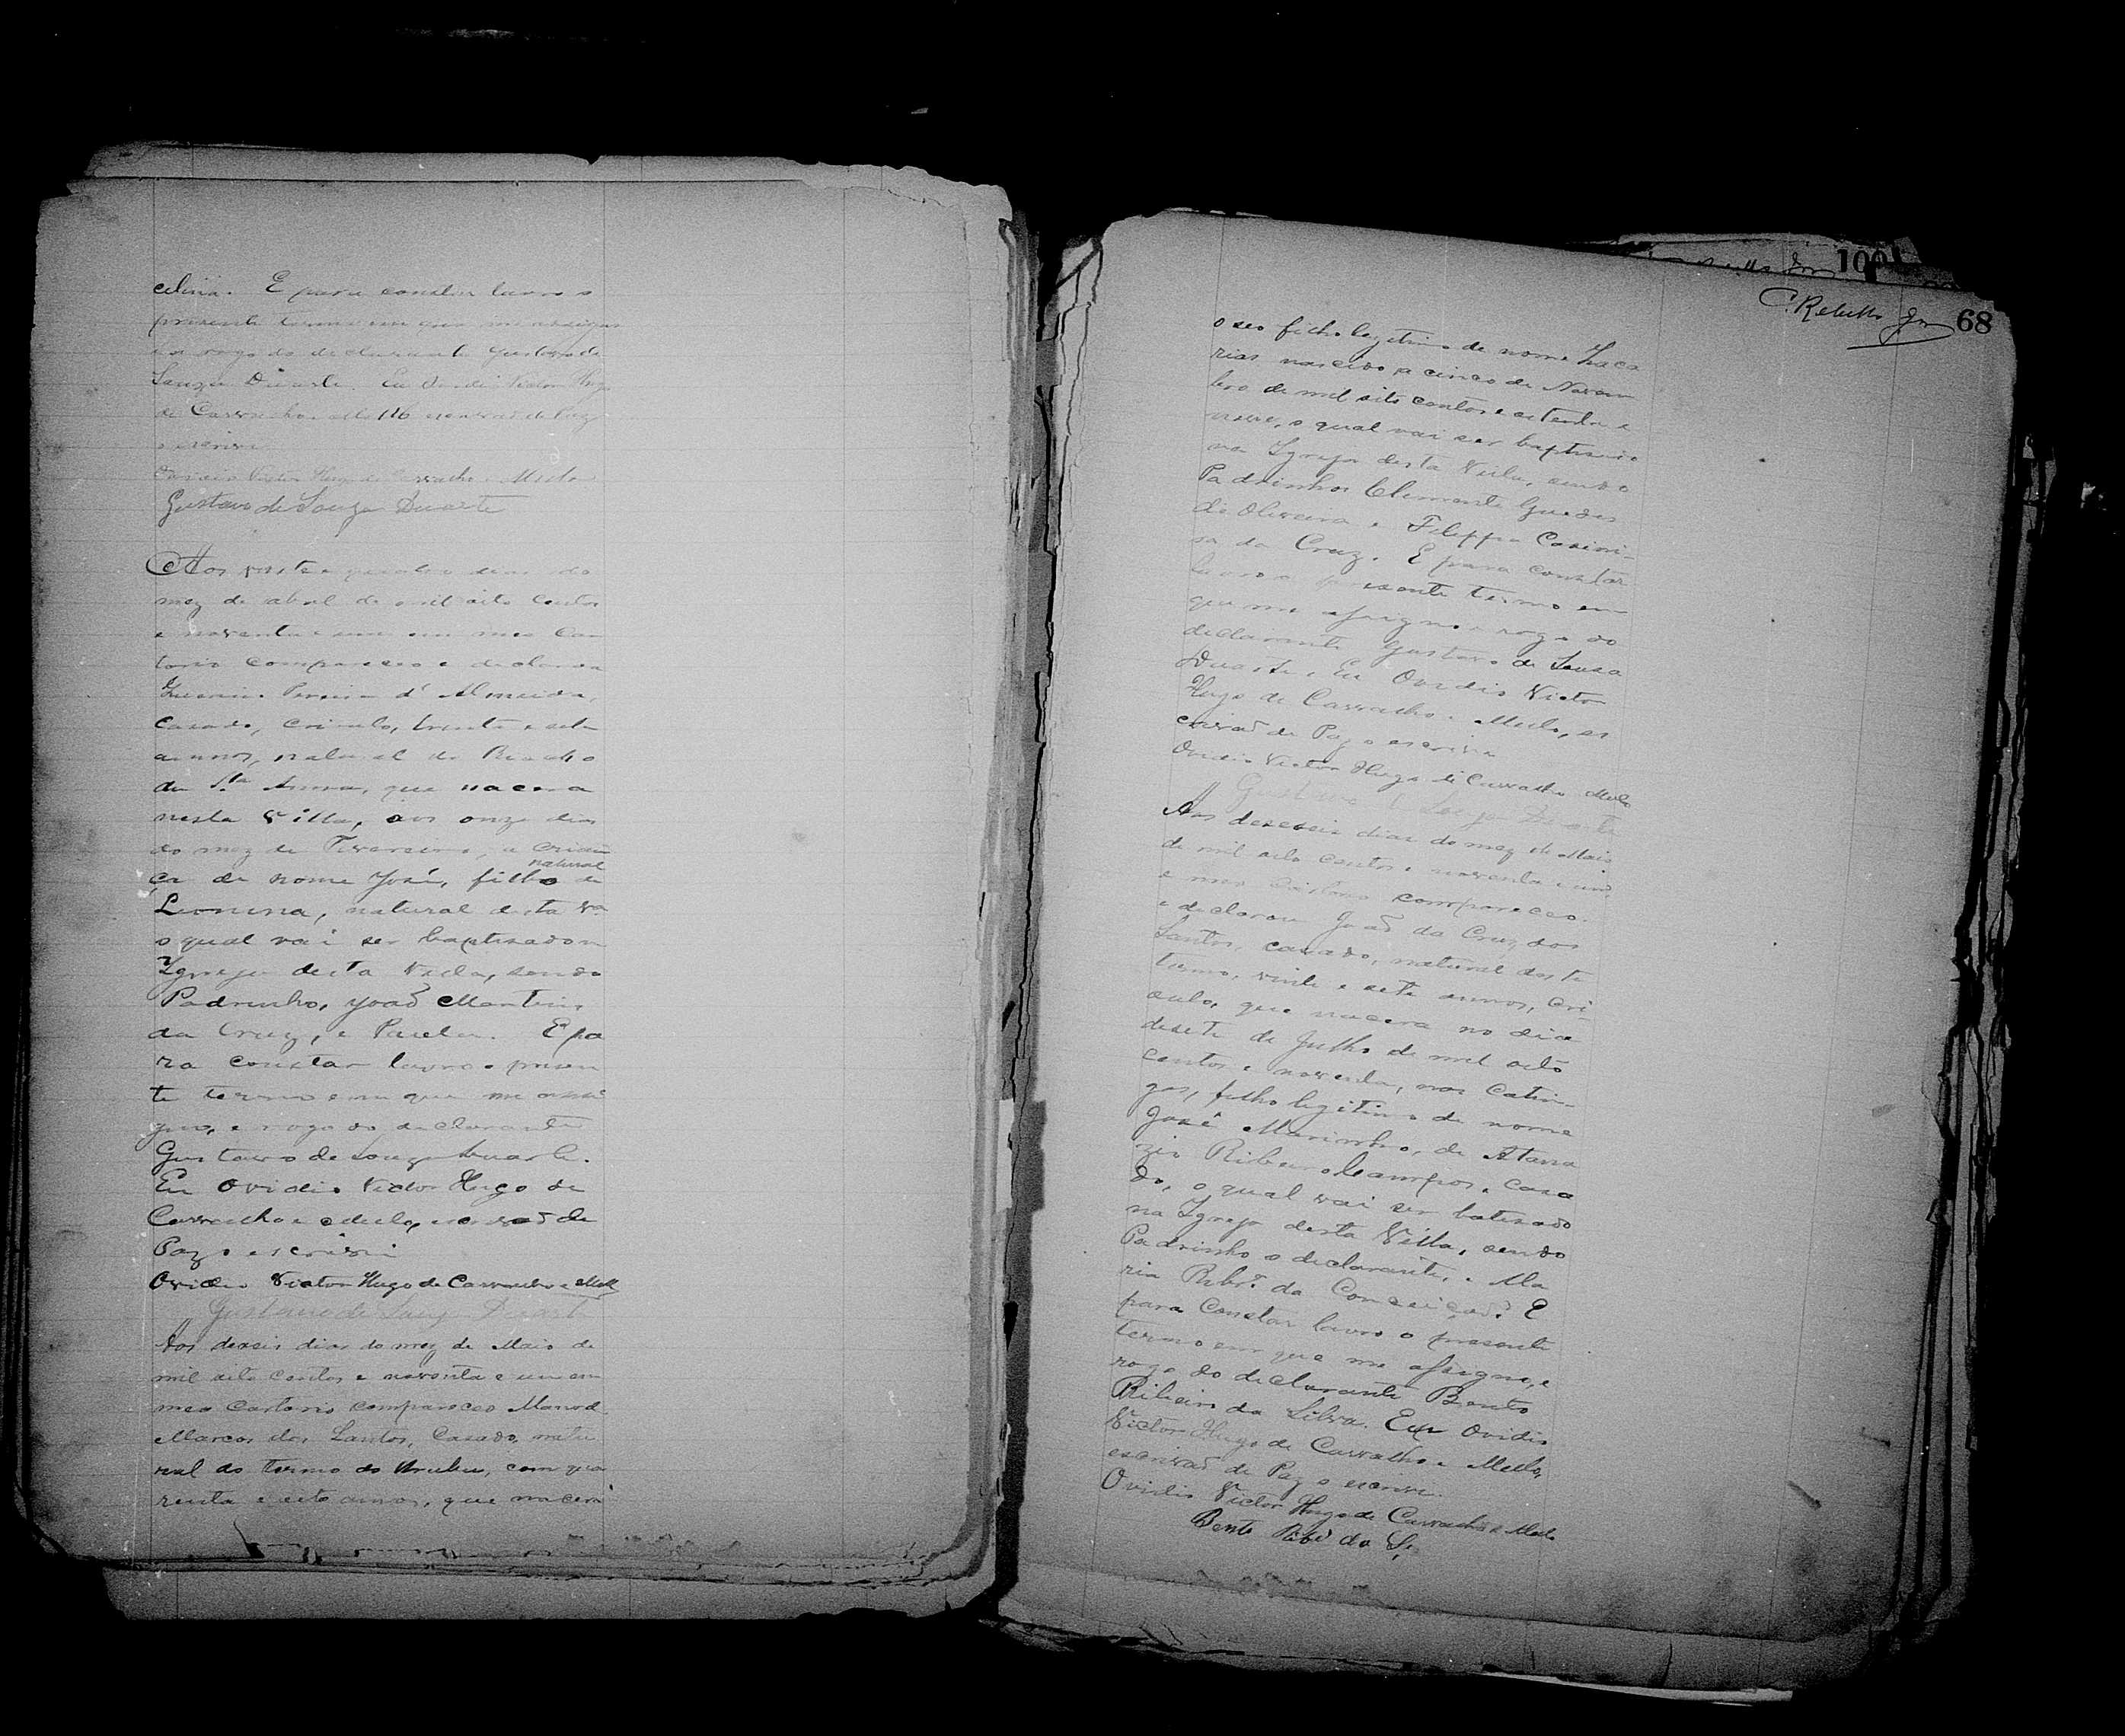 celina. E para constar lavro o
presente termo em que me assigno
e a rogo do declarante Gustavo de
Souza Duarte. Eu Ovidio Victor Hugo
de Carvalho e Mello escrivaõ de Paz
o escrevi
Ovidio Victor Hugo de Carvalho e Mello
Gustavo de Souza Duarte
Aos vinte e quatro dias do
mez de abril de mil oito centos
e noventa e um em meo Car
torio compareceo e declarou
Pereira d'Almeida,
casado, crioulo, trinta e sete
annos, natural do Riacho
de Sta Anna, que nacera
nesta Villa, aos onze dias
do mez de Fevereiro, a crian
natural
ça de nome José, filho de
Leonina, natural desta Va
o qual vai ser baptisado n
Igreja desta Villa, sendo
Padrinho, Joaõ Martins
da Cruz, e Paula. E pa
ra constar lavro o presen
te termo em que me assi
gno, e rogo do declarante
Gustavo de Souza Duarte.
Eu Ovidio Victor Hugo de
Carvalho e Mello, escrivaõ de
Paz o escrevi
Ovidio Victor Hugo de Carvalho e Mello
Gustavo de Souza Duarte
Aos deseis dias do mez de Maio de
mil oito centos e noventa e um em
meo Cartorio compareceo Manoel
Marcos dos Santos, Casado, natu
ral do termo do Urubu, com qua
renta e oito annos, que nacera
100
C. Rebello Jor 68
o seo filho legitimo de nome Zaca
rias nascido a cinco de Novem
bro de mil oito centos e oitenta e
nove, o qual vai ser baptisado
na Igreja desta Villa, sendo
Padrinhos Clemente Guedes
de Oliveira e Filippa Casimi-
sa da Cruz. E para constar
lavro o presente termo em
que me assigno e rogo do
declarante Gustavo de Sousa
Duarte, Eu Ovidio Victor
Hugo de Carvalho e Mello, es
crivaõ de Paz o escrivi
Ovidio Victor Hugo de Carvalho Mello
Gustavo de Souza Duarte
Aos deseseis dias do mez de Maio
de mil oito centos e noventa e um,
e meo Cartorio compareceo
e declarou Joaõ da Cruz dos
Santos, casado, natural deste
termo, vinte e sete annos, cri-
oulo, que nacera no dia
desete de Julho de mil oito
centos e noventa, nas Catin-
gas, filho legitimo de nome
José Marinho, de Atana
zio Ribeiro Campos, casa
do, o qual vai ser batisado
na Igreja desta Villa, sendo
Padrinho o declarante, e Ma
ria Ribro da Conceiçaõ. E
para Constar lavro o presente
termo em que me assigno, e
rogo do declarante Bento
Ribeiro da Silva. Eu Ovidio
Victor Hugo de Carvalho e Mello,
escrivaõ de Paz o escrivi.
Ovidio Victor Hugo de Carvalho e Mello
Bento Ribº da Sª